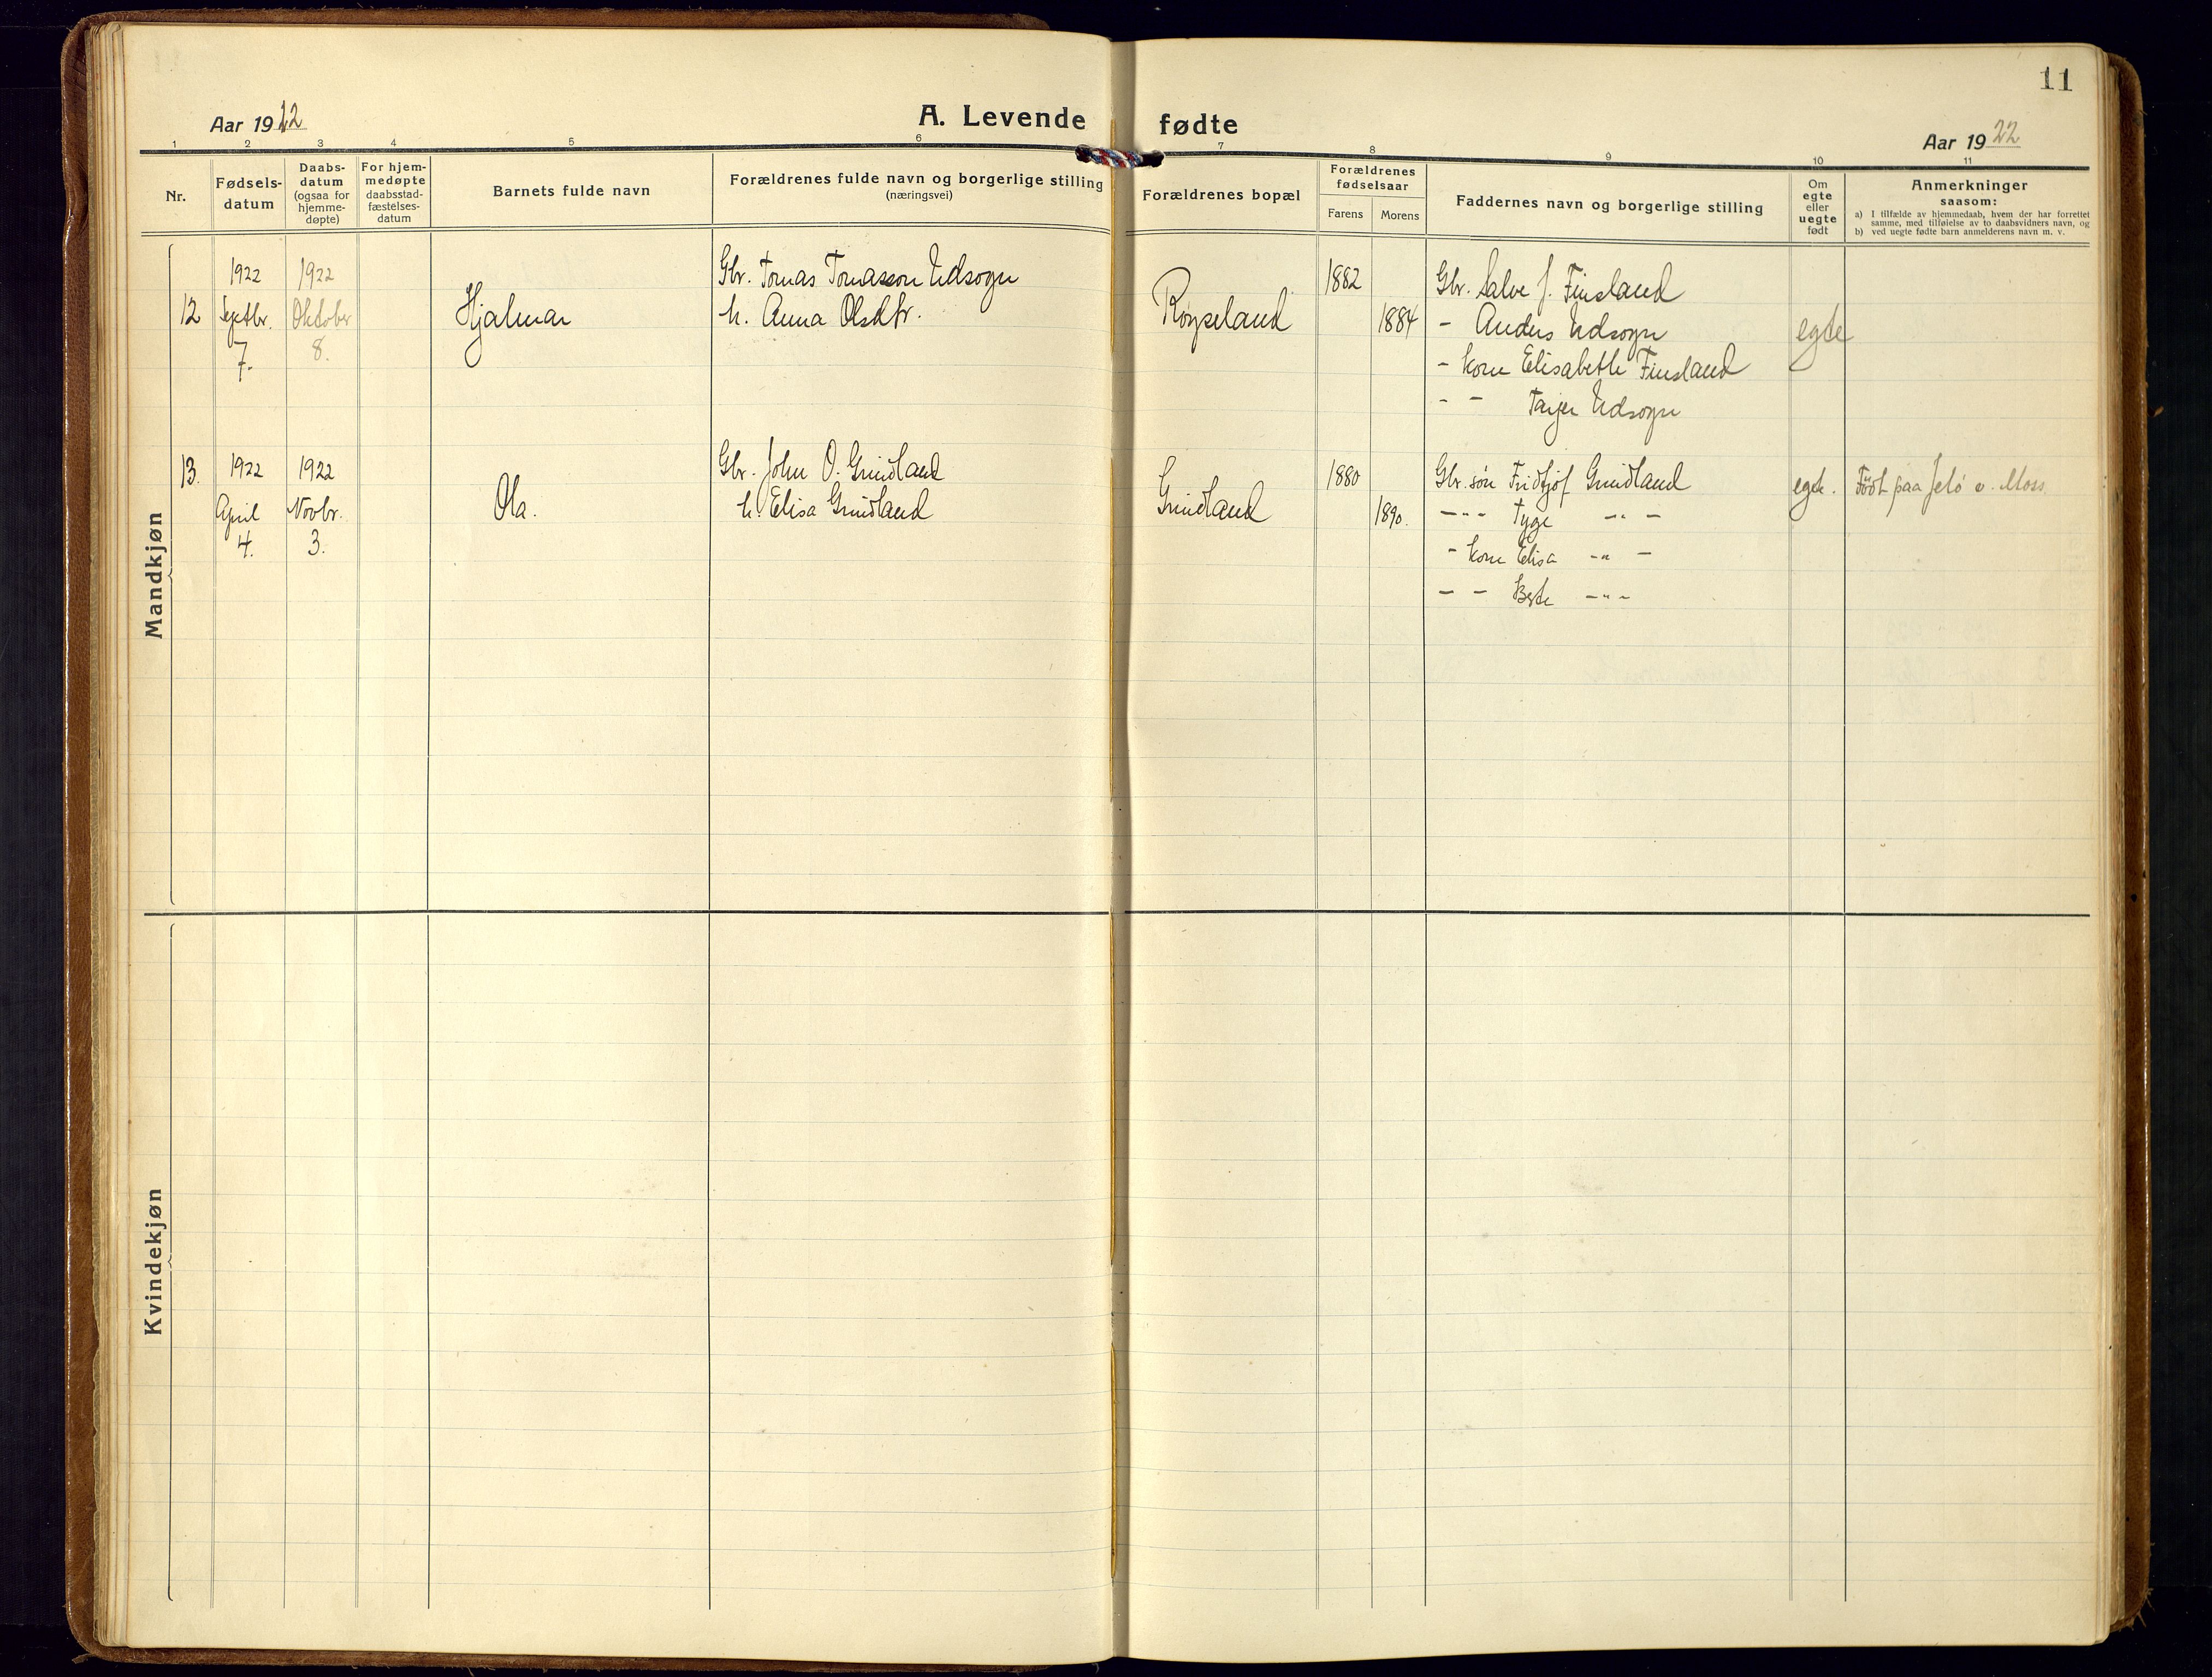 11
Aar 1922
A. Levende fødte
Aar 1922
1 2 3 4 5 6 7 8 9 10 11
Nr.
Fødsels-
datum
Daabs-
datum
(ogsaa for
hjemme-
døpte)
For hjem-
medøpte
daabsstad-
fæstelses-
datum
Barnets fulde navn
Forældrenes fulde navn og borgerlige stilling
(næringsvei)
Forældrenes bopæl
Forældrenes
fødselsaar
Farens
Morens
Faddernes navn og borgerlige stilling
Om
egte
eller
uegte
født
Anmerkninger
saasom:
a) I tilfælde av hjemmedaab, hvem der har forrettet
samme, med tilføielse av to daabsvidners navn, og
b) ved uegte fødte barn anmelderens navn m. v.
Mandkjøn
12
1922
Septbr.
7.
1922
Oktober
8.
Hjalmar
Gbr. Tomas Tomasson Udsogn
h. Anna Olsdtr.
Røyseland
1882
1884
Gbr. Salve J. Finsland
- Anders Udsogn
- kone Elisabeth Finsland
- - Tarjer Udsogn
egte
13.
1922
April
4.
1922
Novbr.
3.
Ola.
Gbr. John O. Grindland
h. Elisa Grindland
Grindland
1880
1890.
Gbr. søn Fridtjof Grindland
- " - Tyge - " -
- kone Elisa - " -
- - Berte - " -
egte.
Født paa Jelø v. Moss.
Kvindekjøn